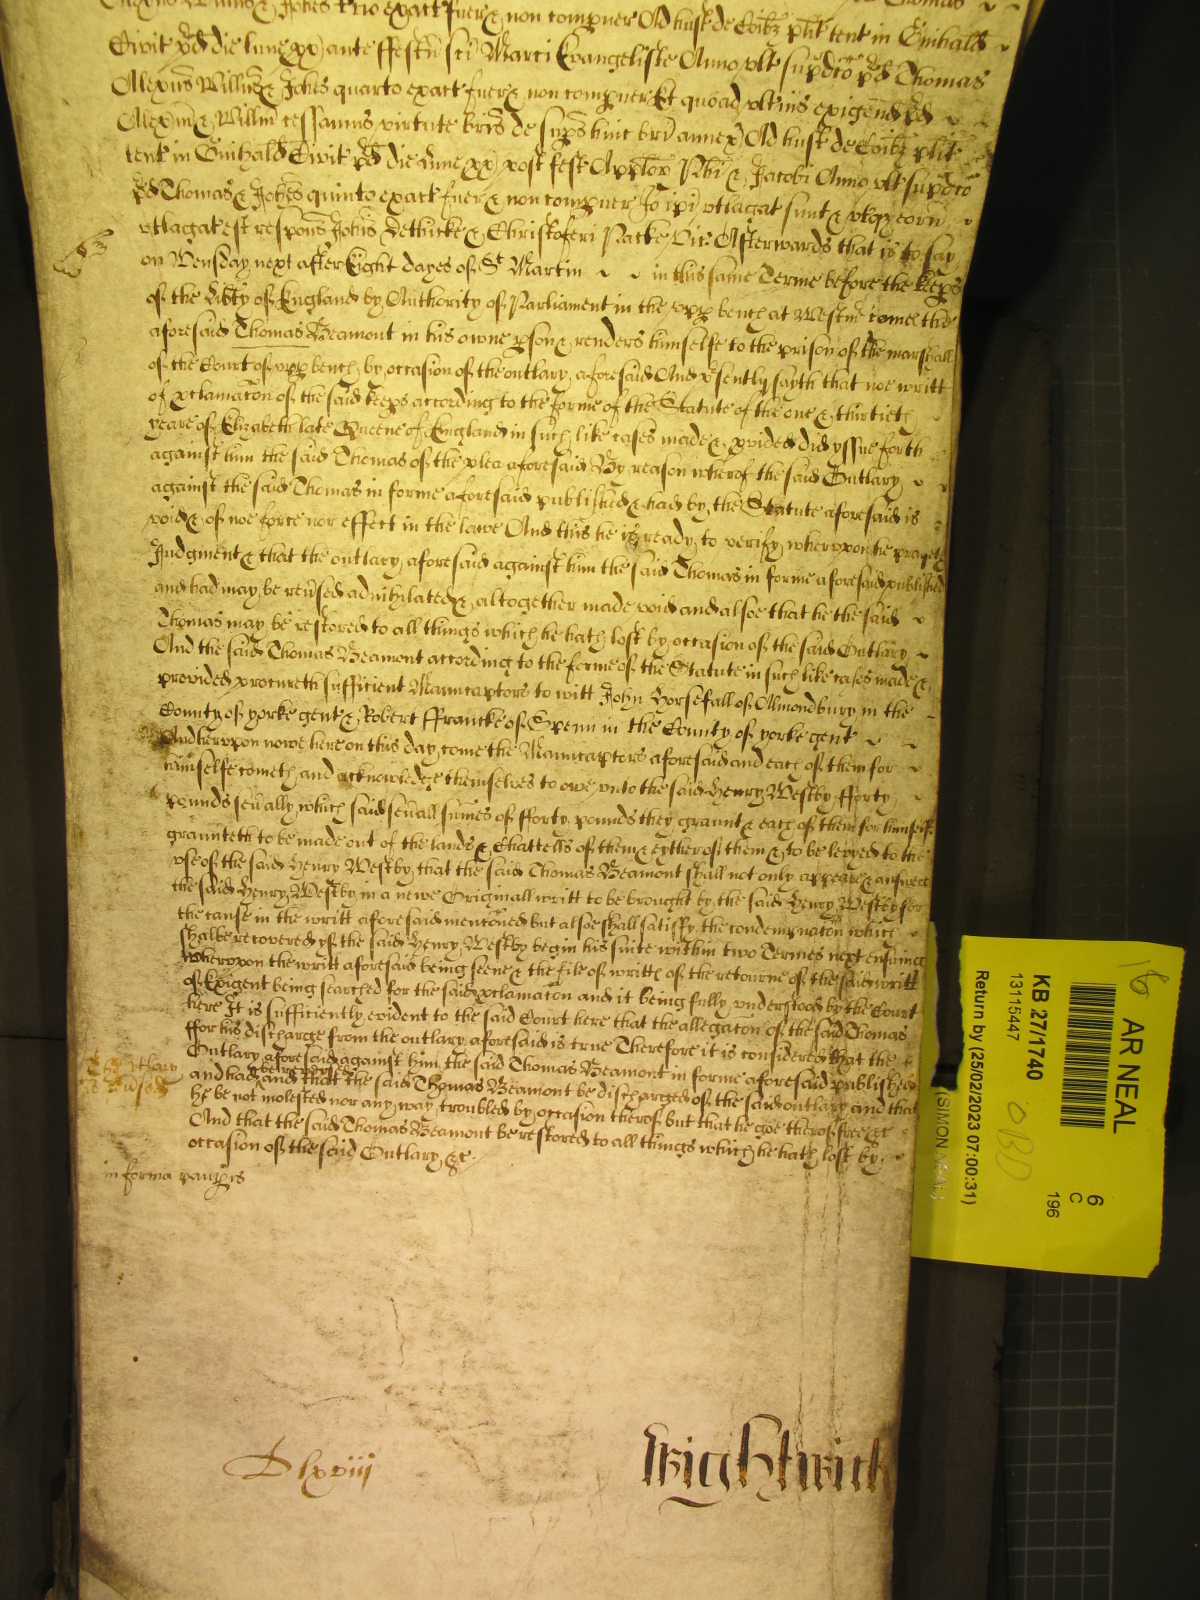 Willus & Johes t'cio exact fuer & non compuer Ad hust de Coibz plit tent in Guihald
Civit pd die lune px ante ffestu sci Marci Evangeliste Anno ult supdco pd Thomas
Alexus Willus & Johes quarto exact fuer & non compuer Et quoad ult'ius exigend pd
Alexm & Willm cessamus virtute bris de sups huic bri annex Ad hust de Coibz plit
tent in Guihald Civit pd die lune px post fest Apptor Phi & Jacobi Anno ult supdco
pd Thomas & Johes quinto exact fuer & non compuer Jo ipi utlagat sunt & utqz eor
utlagat est respons Johis Dethicke & Christoferi Packe Vic Afterwards that is to say
on Wensday next after Eight dayes of St Martin in this same Terme before the keeps
of the Libty of England by Authority of Parliament in the upp bench at Westm comes the
aforesaid Thomas Beamont in his owne pson & renders himselfe to the prison of the marshall
of the Court of upp bench by occasion of the outlary aforesaid And psently sayth that noe writt
of pclamacon of the said keeps according to the forme of the Statute of the one & thirtieth
yeare of Elizabeth late Queene of England in such like cases made & pvided did yssue forth
against him the said Thomas of the plea aforesaid By reason wherof the said Outlary
against the said Thomas in forme aforesaid published & had by the Statute aforesaid is
void & of noe force nor effect in the lawe And this he is ready to verify wherupon he prayeth
Judgment & that the outlary aforesaid against him the said Thomas in forme aforesaid published
and had may be revsed adnihilated & altogether made void and alsoe that he the said
Thomas may be restored to all things which he hath lost by occasion of the said Outlary
And the said Thomas Beamont according to the forme of the Statute in such like cases made &
provided procureth sufficient Manucaptors to witt John Horsefall of Almondbury in the
County of yorke gent & Robert ffrancke of Spenn in the County of yorke gent
And herupon nowe here on this day come the Manucaptors aforesaid and each of them for
himselfe cometh and acknowledge themselves to owe unto the said Henry Westby fforty
pounds sevally which said sevall sumes of fforty pounds they graunt & each of them for himselfe
graunteth to be made out of the lands & chattells of them & eyther of them & to be levyed to the
use of the said Henry Westby that the said Thomas Beamont shall not only appeare & answere
the said Henry Westby in a newe Originall writt to be brought by the said Henry Westby for
the cause in the writt aforesaid mentioned but alsoe shall satisfy the condempnacon which
shalbe recovered yf the said Henry Westby begin his suite within two Termes next ensuing
Wherupon the writt aforesaid being seene & the file of writts of the retourne of the said writt
of Exigent being searched for the said pclamacon and it being fully understood by the Court
here It is sufficiently evident to the said Court here that the allegacon of the said Thomas
ffor his discharge from the outlary aforesaid is true Therefore it is considered that the
Outlary aforesaid against him the said Thomas Beamont in forme aforesaid published
and had be reversed and that the said Thomas Beamont be discharged of the said outlary and that
he be not molested nor any way troubled by occasion therof but that he goe therof free &c
And that the said Thomas Beamont be restored to all things which he hath lost by
occasion of the said Outlary &c
The utlary
is revised
in forma paupis
D lxviii
Wightwick
16
AR NEAL
(SIMON NEAL)
KB 27/1740
13115447
Return by (25/02/2023 07:00:31)
OBD
6
C
196